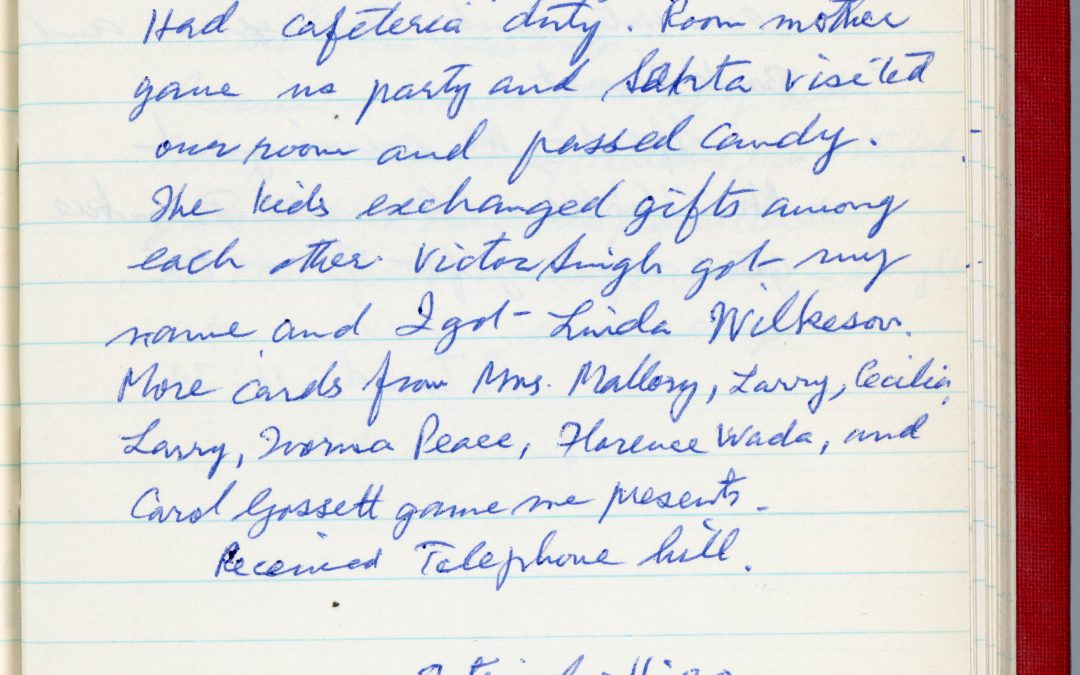 Had cafeteria duty. Room mother
gave us party and Santa visited
our room and passed candy.
The kids exchanged gifts among
each other. Victor Singh got my
name and I got Linda Wilkeson.
More cards from Mrs. Mallory, Larry, Cecilia,
Larry, Norma Peace, Florence Wada, and
Carol Gossett game me presents.
Received Telephone bill.